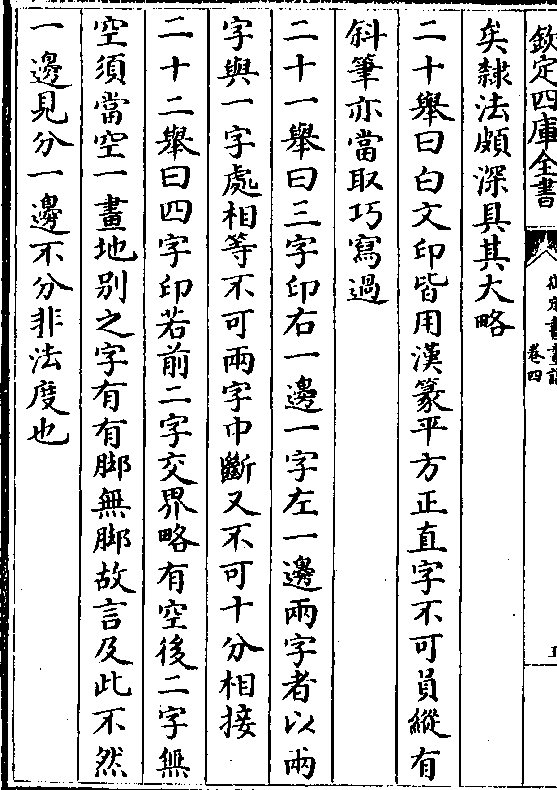 欽定四庫全書
卷四
矣隸法頗深具其大略
二十舉曰白文印皆用漢篆平方正直字不可員縱有
斜筆亦當取巧寫過
二十一舉曰三字印右一邊一字左一邊兩字者以兩
字與一字處相等不可兩字中斷又不可十分相接
二十二舉曰四字印若前二字交界略有空後二字無
空須當空一畫地别之字有有脚無脚故言及此不然
一邊見分一邊不分非法度也